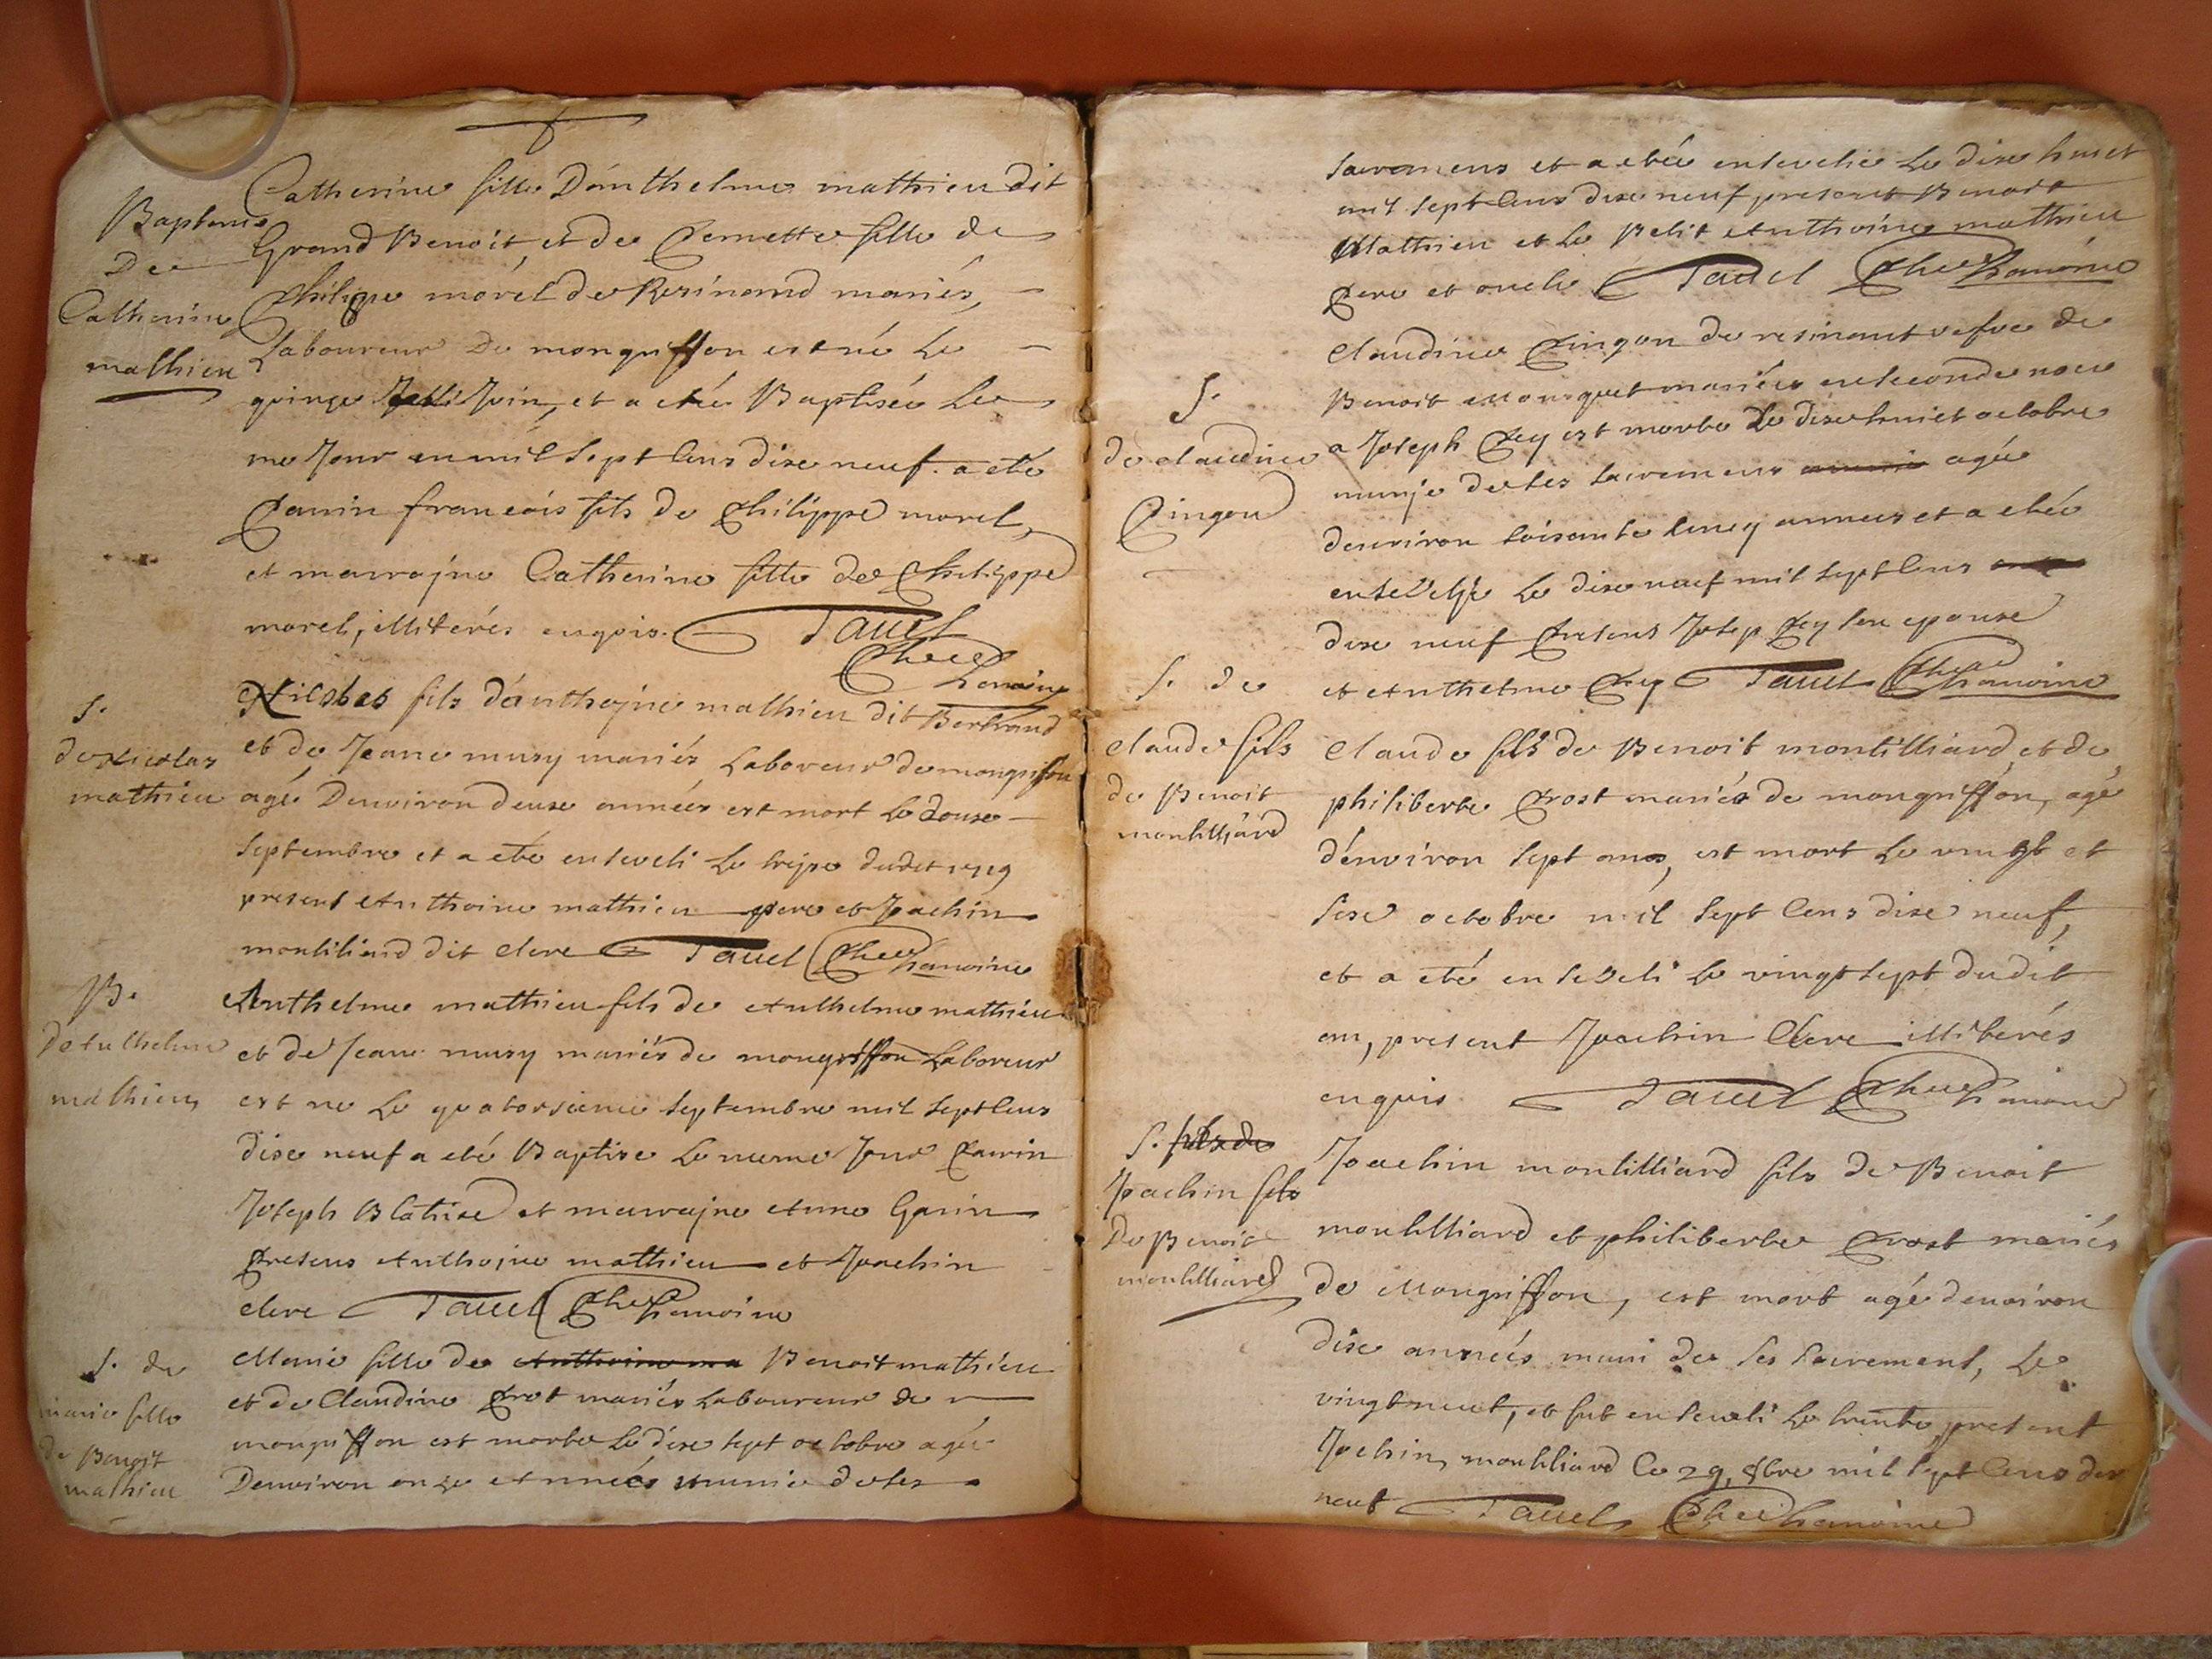 Bapteme
De
Catherine
mathieu
Catherine fille Dánthelme mathieu dit
Grand Benoit, et de Pernette fille de
Philippe morel de Resinand mariés,
Laboureur De mongriffon est né le
quinze Juin, et a eté Baptisée le
me Jour en mil Sept Cens dixe neuf. a eté
Parrin francois fils de Philippe morel,
et marrajne Catherine fille de Philippe
morel, illiterés enquis. Tavel
Chanoine
S.
de Nicolas
mathieu
Nicolas fils d'anthojne mathieu dit Bertrand
et de Jeane musy mariés Laboreur de mongriffon
agé Denviron deuxe années est mort le douse
Septembre et a eté enseveli le trejze dudit 1719
present Anthoine mathieu pere et Joachin
montiliard dit Clere Tavel Chanoine
B.
d'Anthelme
mathieu
Anthelme mathieu fils de Anthelme mathieu
et de Jeane musy mariés de mongriffon Laboreur
est ne le quatorsieme Septembre mil Sept Cens
dixe neuf a eté Baptise le meme Jour Parrin
Joseph Blatrise et marrajne Anne Garin
Presens Anthojne mathieu et Joachin
clere Tavel Chanoine
S. de
marie fille
de Benoit
mathieu
Marie fille de Anthoine ma Benoit mathieu
et de Claudine Prost mariés Laboureur de
mongriffon est morte le dixe sept octobre agée
Denviron onze Années munie de ses
sacremens et a etée ensevelie le dixe huict
mil sept Cens dixe neuf present Benoit
Mathieu et le Petit Anthoine mathieu
Pere et oncle Tavel Chanoine
S.
de claudine
Pingon
Claudine Pingon de resinant vefve de
Benoit Mousquet mariée en seconde noce
a Joseph Fey est morte Le dixe huict octobre
munje de ses sacremens agée
denviron soixante cincq annees et a etée
ensevelje le dixe neuf mil sept Cens
dixe neuf Presens Josep Fey son epouse
et Anthelme Fey Tavel Chanoine
S. de
claude fils
de Benoit
montilliard
Claude fils de Benoit montilliard, et de
philiberte Prost mariés de mongriffon, agé
d'énviron sept ans, est mort le vingt et
sixe octobre mil Sept Cens dixe neuf,
et a eté enseveli le vingt sept dudit
an, present Joachin Clere illiterés
enquis. Tavel Chanoine
S. fils de
Joachin fils
De Benoit
montilliard
Joachin montilliard fils de Benoit
montilliard et philiberte Prost mariés
de Mongriffon, est mort agé denviron
dixe années muni de ses sacrement, le
vingt neuf, et fut enseveli le trente, present
Jochin montiliard Ce 29, 8bre mil sept Cens dix
neuf Tavel Chanoine